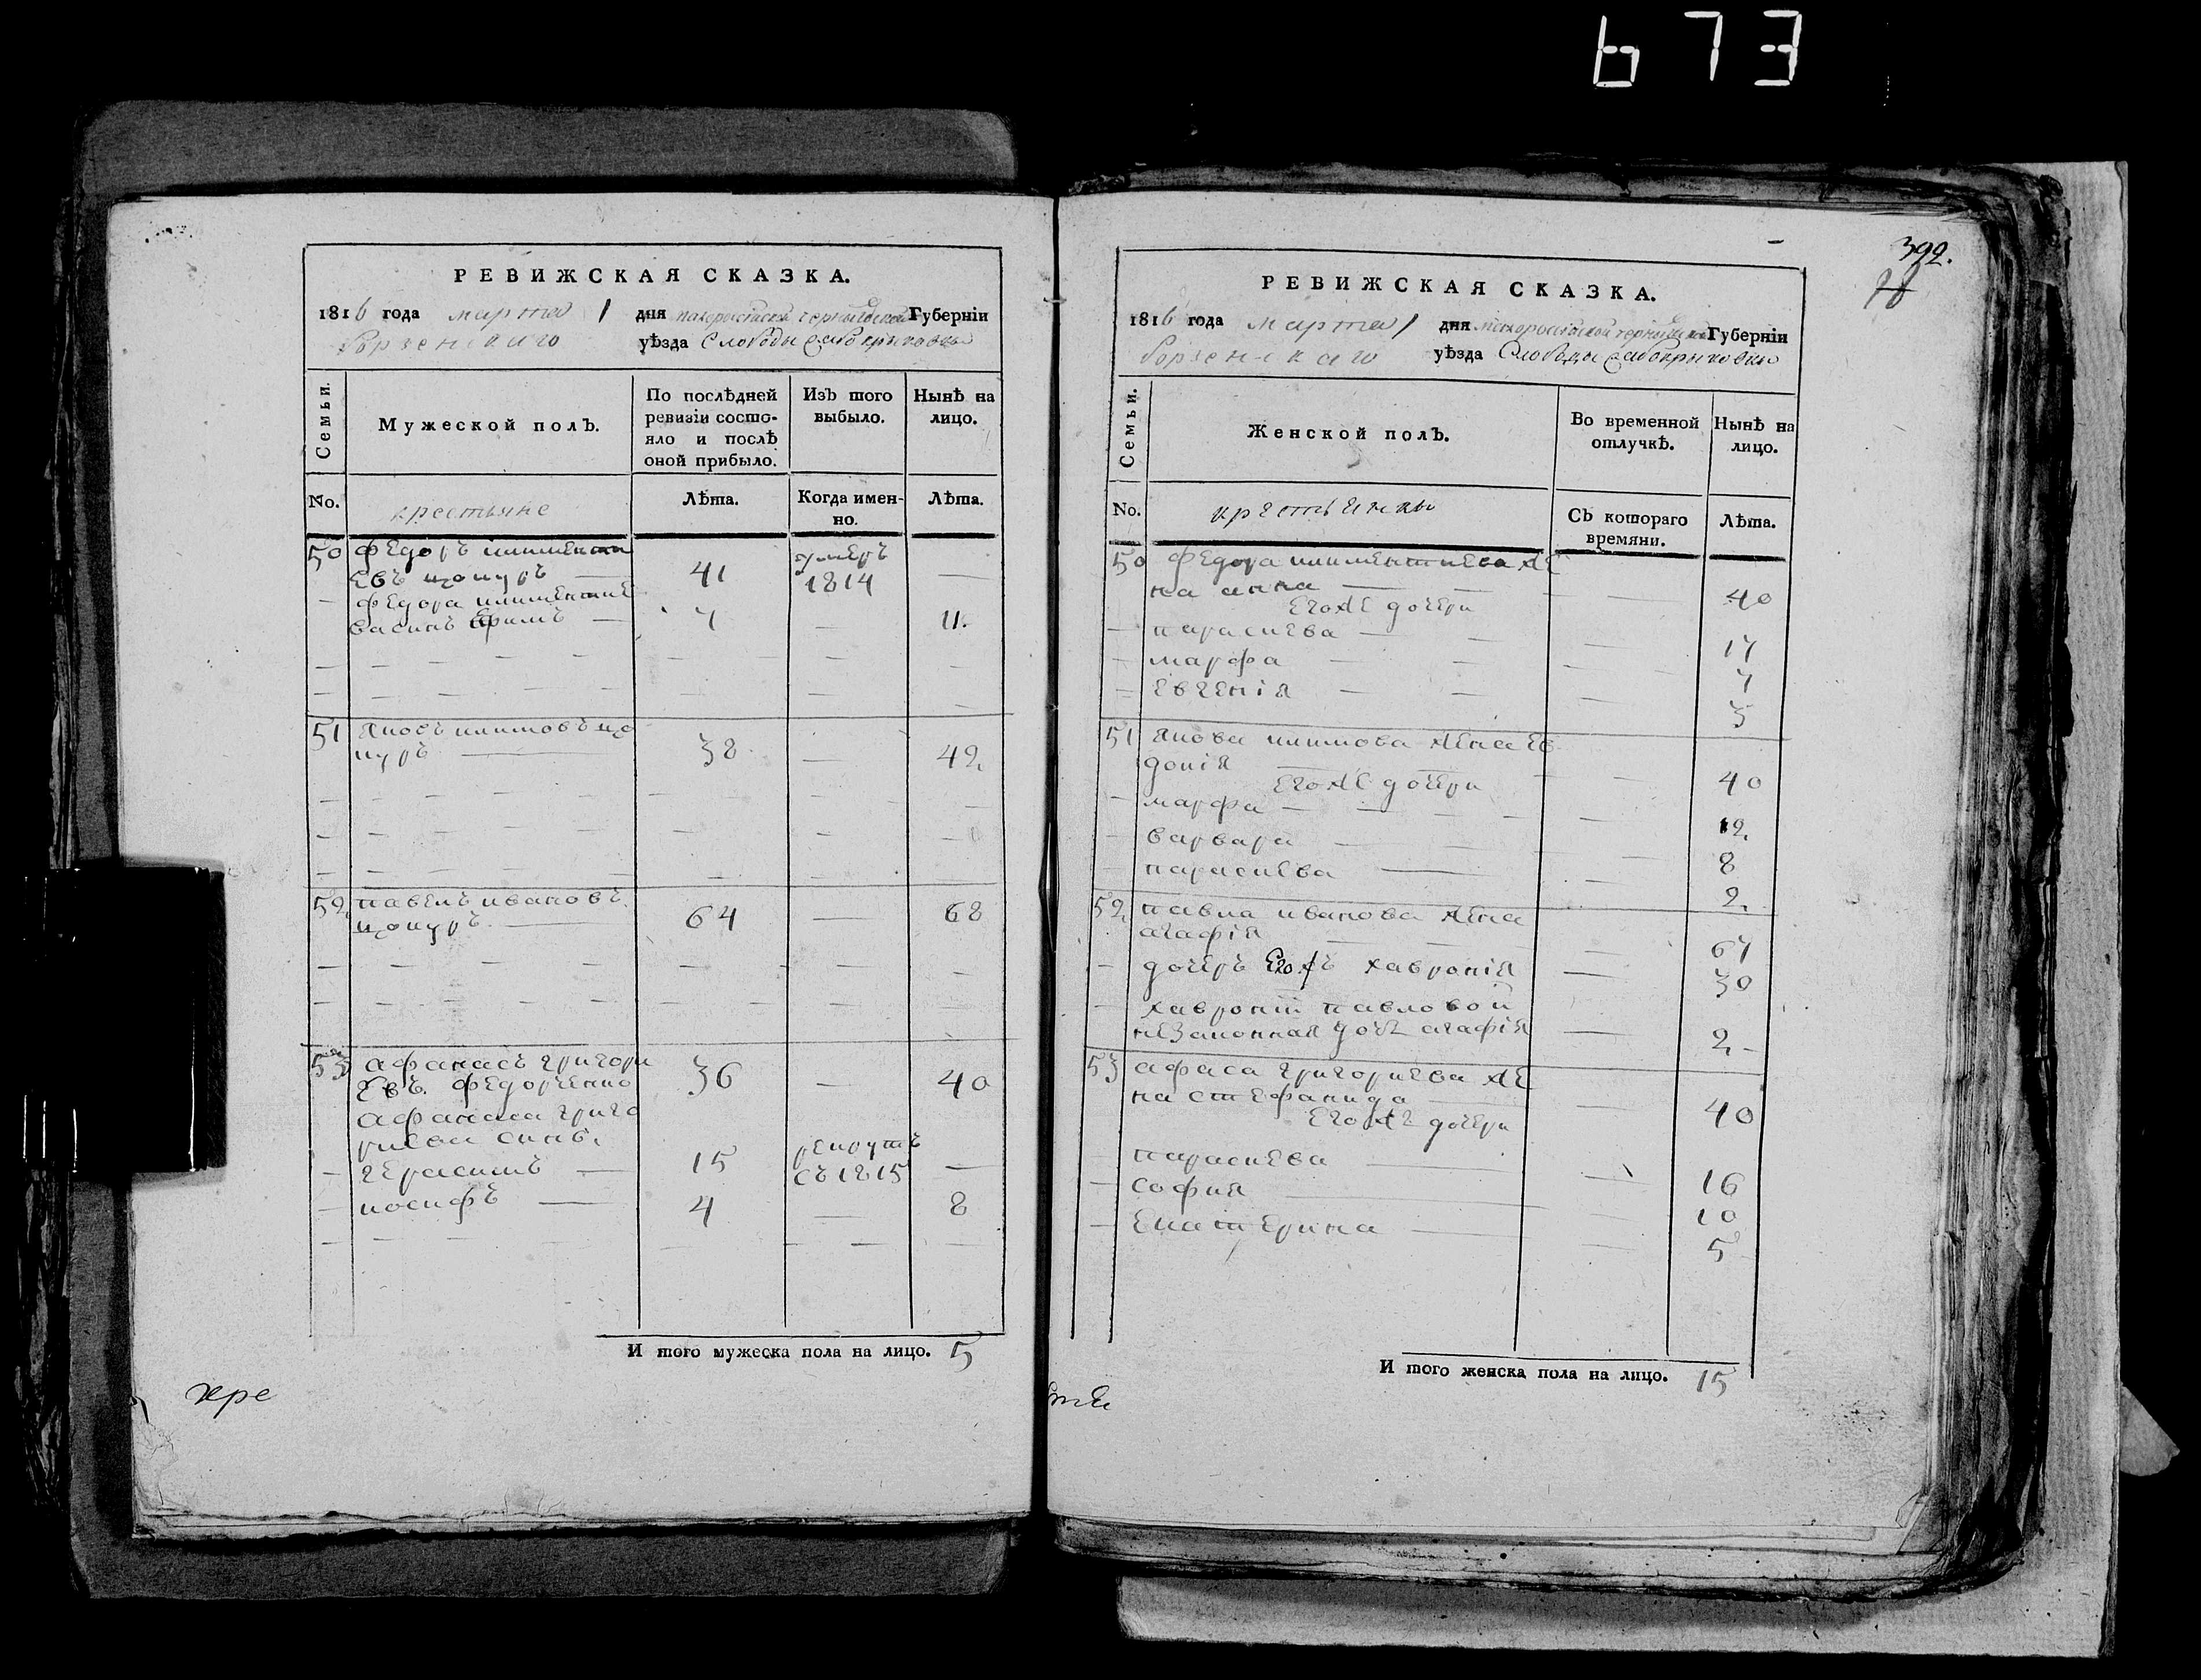 673
РЕВИЖСКАЯ СКАЗКА.
1816 года марта 1 дня малоросійской черниговской Губерніи
борзенскаго уѣзда Слободы
Семьи.
Мужеской полъ.
По послѣдней ревизіи состояло и послѣ оной прибыло.
Изъ того выбыло.
Нынѣ на лицо.
No.
крестьяне
Лѣта.
Когда именно.
Лѣта.
50 Федоръ климентъи
евъ 41 умеръ 1814 —
Федора климентие
ва синъ 7 — 11.
51 Яковъ климовъ
38 — 42
52 павелъ ивановъ
64 — 68
53 афанасъ григори
евъ. Федорченко 36 — 40
афанаса григо
риева сины
герасимъ — 15 рекрутъ съ 1815 —
иосифъ — 4 — 8
И того мужеска пола на лицо. 5
кре
392.
РЕВИЖСКАЯ СКАЗКА.
1816 года марта 1 дня малоросійской черниговской Губерніи
борзенскаго уѣзда Слободы
Семьи.
Женской полъ.
Во временной отлучкѣ.
Нынѣ на лицо.
No.
крестьянки
Съ котораго времяни.
Лѣта.
50 Федора климентиева же
на анна — 40
его же дочери
параскева — 17
марфа — 7
евгенія — 3
51 Якова климова жена ев
докія — 40
его же дочери
марфа — 12
варвара — 8
параскева — 2
52 павла иванова жена
агафія — 67
дочеръ его жъ хавронія — 30
хавроніи павловой
незаконная дочь агафія — 2
53 афаса григориева же
на стефанида — 40
его же дочери
параскева — 16
софия — 10
екатерина — 5
И того женска пола на лицо. 15